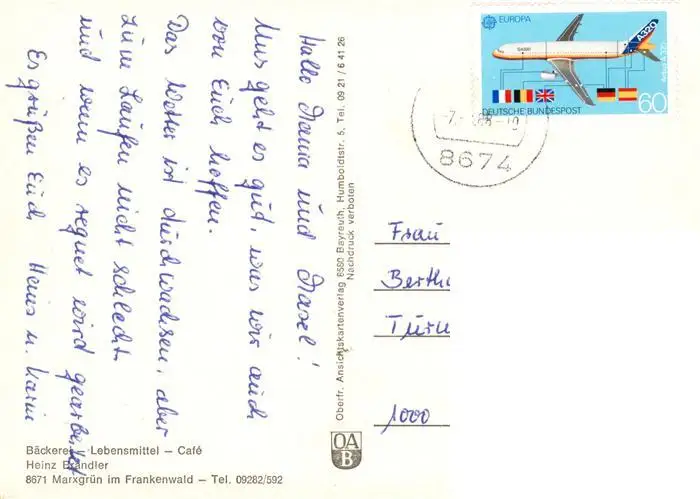 Hallo Mama und Marel!
Uns geht es gut, was wir auch
von Euch hoffen.
Das Wetter ist durchwachsen, aber
zum Laufen nicht schlecht
und wenn es regnet wird gearbeitet
Es grüßen Euch Heins u. Karin
Bäckerei – Lebensmittel – Café
Heinz Brandler
8671 Marxgrün im Frankenwald – Tel. 09282/592
Oberfr. Ansichtskartenverlag 8580 Bayreuth, Humboldtstr. 5, Tel. 09 21 / 6 41 26
Nachdruck verboten
OA
B
EUROPA
A320
Airbus A320
DEUTSCHE BUNDESPOST
60
8674
Frau
Berth
Turn
1000